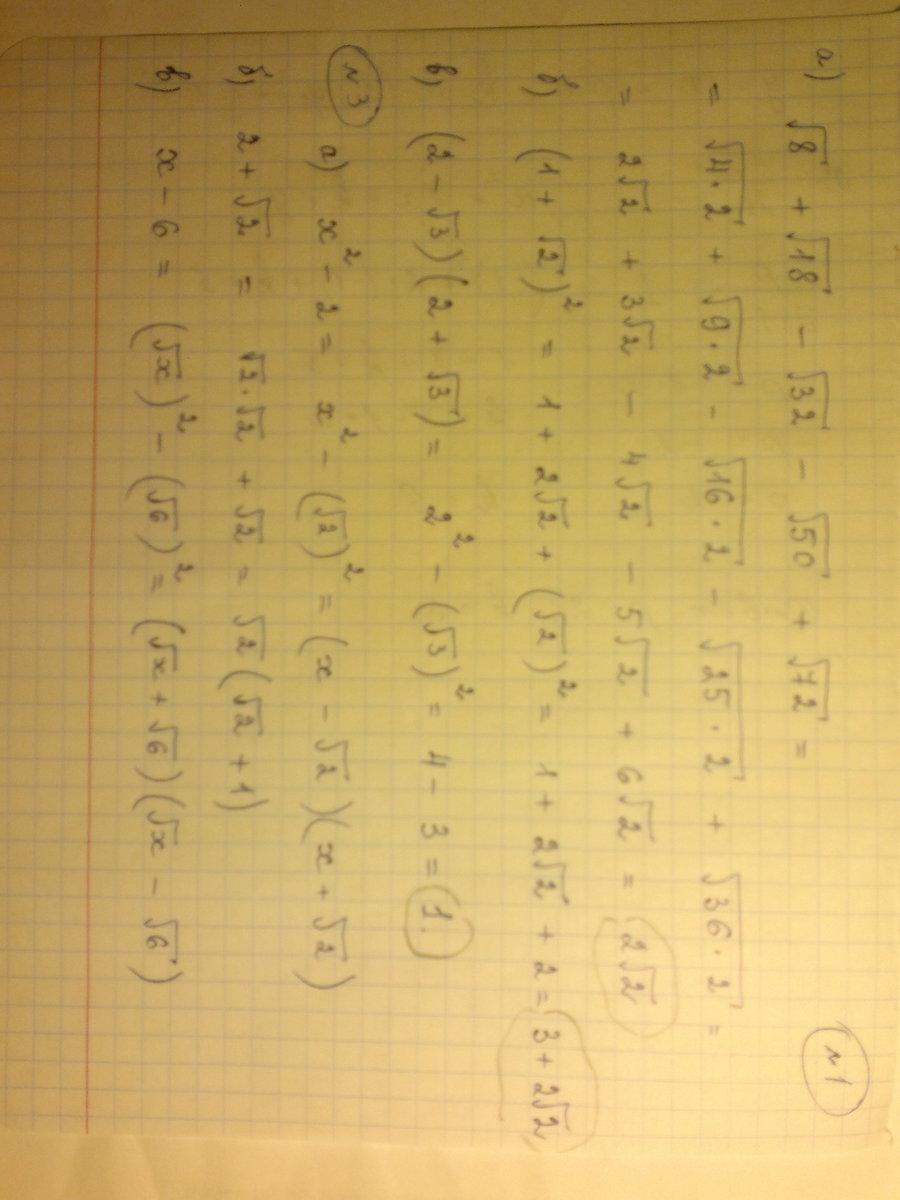 №1
а) √8 + √18 − √32 − √50 + √72 =
= √4·2 + √9·2 − √16·2 − √25·2 + √36·2 =
= 2√2 + 3√2 − 4√2 − 5√2 + 6√2 = 2√2
б) (1 + √2)² = 1 + 2√2 + (√2)² = 1 + 2√2 + 2 = 3 + 2√2
в) (2 − √3)(2 + √3) = 2² − (√3)² = 4 − 3 = 1.
№3
а) x² − 2 = x² − (√2)² = (x − √2)(x + √2)
б) 2 + √2 = √2·√2 + √2 = √2(√2 + 1)
в) x − 6 = (√x)² − (√6)² = (√x + √6)(√x − √6)